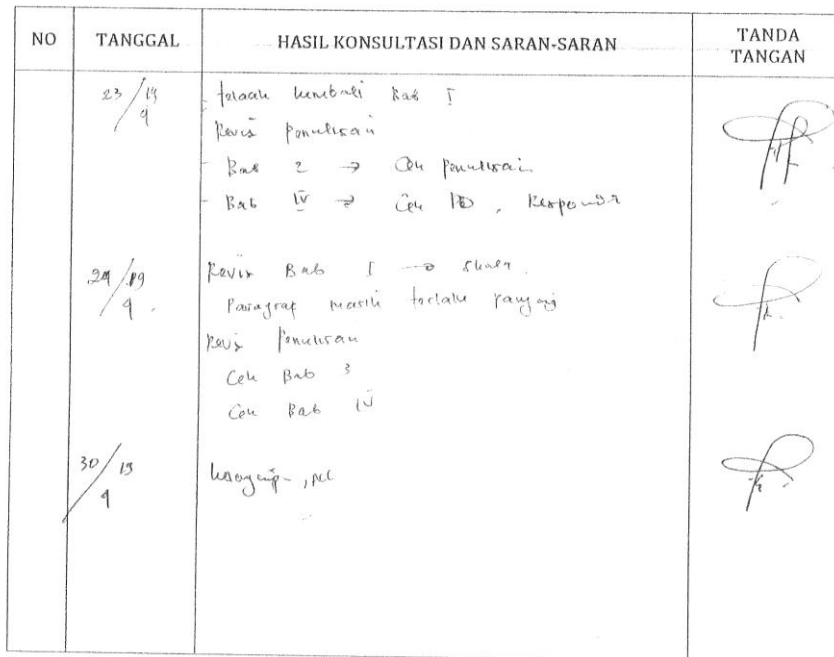 NO TANGGAL HASIL KONSULTASI DAN SARAN-SARAN TANDA TANGAN
23/19 9
- telaah kembali Bab I
Revisi penulisan
- Bab 2 → Cek penulisan
- Bab IV → Cek , Responden
24/19 9
Revisi Bab I →
Paragraf masih terlalu panjang
Revisi penulisan
Cek Bab 3
Cek Bab IV
30/19 9